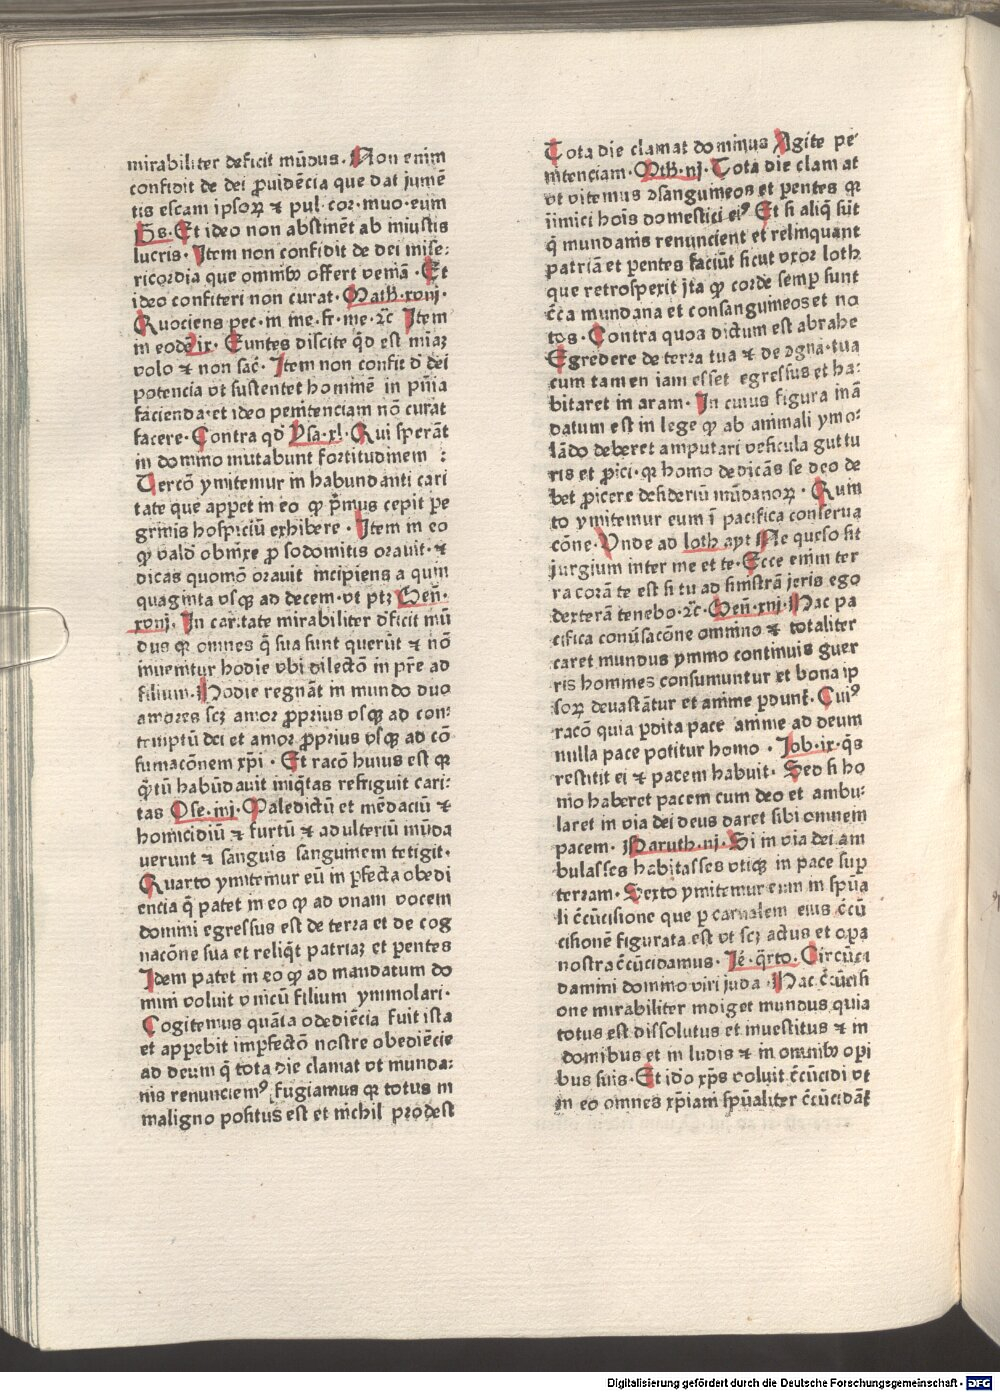 mirabiliter deficit mūdus. Non enim
confidit de dei ꝓuidēcia que dat jumē
tis escam ipsoꝝ ⁊ pul. coꝛ. inuo. eum
Hs. Et ideo non abstinēt ab iniustis
lucris. Item non confidit de dei mise:
ricordia que omnibꝰ offert veniā. Et
ideo confiteri non curat. Math. xviij.
Quociens pec. in me. fr. me. ⁊c Item
in eodē ix. Euntes discite qd est mīaꝫ
volo ⁊ non sac̄. Item non confit d dei
potencia vt sustentet hominē in pn̄ia
facienda. et ideo penitenciam nō curat
facere. Contra qd Ysa. xl. Qui sperāt
in domino mutabunt fortitudinem :
Tercō ymitemur in habundanti cari
tate que apꝑet in eo ꝙ pͥmus cepit pe
grinis hospiciū exhibere. Item in eo
ꝙ valdͤ obnixe ꝓ sodomitis orauit. ⁊
dicas quomō orauit incipiens a quin
quaginta vsqꝫ ad decem. vt ptꝫ Gen̄.
xviij. In caritate mirabiliter dͤficit mū
dus qꝛ omnes q̄ sua sunt querūt ⁊ nō
inuenitur hodie vbi dilectō in pr̄e ad
filium. Hodie regnāt in mundo duo
amores scꝫ amor ꝓprius vsqꝫ ad con:
temptū dei et amor ꝓprius vsqꝫ ad cō
sumacōnem xp̄i. Et racō huius est qꝛ
q̄tū habūdauit iniq̄tas refriguit cari:
tas Ose. iiij. Maledictū et mēdaciū ⁊
homicidiū ⁊ furtū ⁊ adulteriū mūda
uerunt ⁊ sanguis sanguinem tetigit.
Quarto ymitemur eū in ꝑfecta obedi
encia q̄ patet in eo ꝙ ad vnam vocem
domini egressus est de terra et de cog
nacōne sua et reliq̄t patriaꝫ et ꝑentes
Idem patet in eo ꝙ ad mandatum do
mini voluit vnicū filium ymmolari.
Cogitemus quāta odediēcia fuit ista
et apꝑebit imꝑfectō nostre obediēcie
ad deum q̄ tota die clamat vt munda:
nis renunciemꝰ fugiamus qꝛ totus in
maligno positus est et nichil prodest
Tota die clamat dominus Agite pe
nitenciam. Mth. iij. Tota die clamat
vt vitemus ꝯsanguineos et ꝑentes qꝛ
iimici hoīs domestici eiꝰ Et si aliq̄ sūt
q̄ mundanis renuncient et relinquant
patriā et ꝑentes faciūt sicut vxoꝛ loth
que retrospexit ita ꝙ corde semꝑ sunt
c̄ca mundana et consanguineos et no
tos. Contra quod dictum est abrahe
Egredere de terra tua ⁊ de ꝯgna. tua
cum tamen iam esset egressus et ha:
bitaret in aram. In cuius figura mā
datum est in lege ꝙ ab animali ymo:
lādo deberet amputari vesicula guttu
ris et ꝓici. qꝛ homo dedicās se deo de
bet ꝓicere desideriū mūdanoꝝ. Quin
to ymitemur eum ī pacifica conserua
cōne. Vnde ad loth ayt Ne queso sit
jurgium inter me et te. Ecce enim ter
ra corā te est si tu ad sinistrā jeris ego
dexterā tenebo. ⁊c. Gen̄. xiij. Hac pa
cifica conūsacōne omnino ⁊ totaliter
caret mundus ymmo continuis guer
ris homines consumuntur et bona ip
soꝝ deuastātur et anime ꝑdunt̄. Cuiꝰ
racō quia ꝑdita pace anime ad deum
nulla pace potitur homo. Job. ix. q̄s
restitit ei ⁊ pacem habuit. Sed si ho
mo haberet pacem cum deo et ambu:
laret in via dei deus daret sibi omnem
pacem. Baruth. iij. Si in via dei am
bulasses habitasses vtiqꝫ in pace suꝑ
terram. Sexto ymitemur eum in spūa
li c̄cūcisione que ꝑ carnalem eius c̄cū
cisionē figurata est vt scꝫ actus et oꝑa
nostra c̄cūcidamus. Je͛. q̄rto. Circūci
damini domino viri juda. Hac c̄cūcisi
one mirabiliter indiget mundus quia
totus est dissolutus et in uestitus ⁊ in
domibus et in ludis ⁊ in omnibꝰ oꝑi
bus suis. Et ido xp̄s voluit c̄cūcidi vt
in eo omnes xp̄iani spūaliter c̄cūcidāt̄
Digitalisierung gefördert durch die Deutsche Forschungsgemeinschaft - DFG